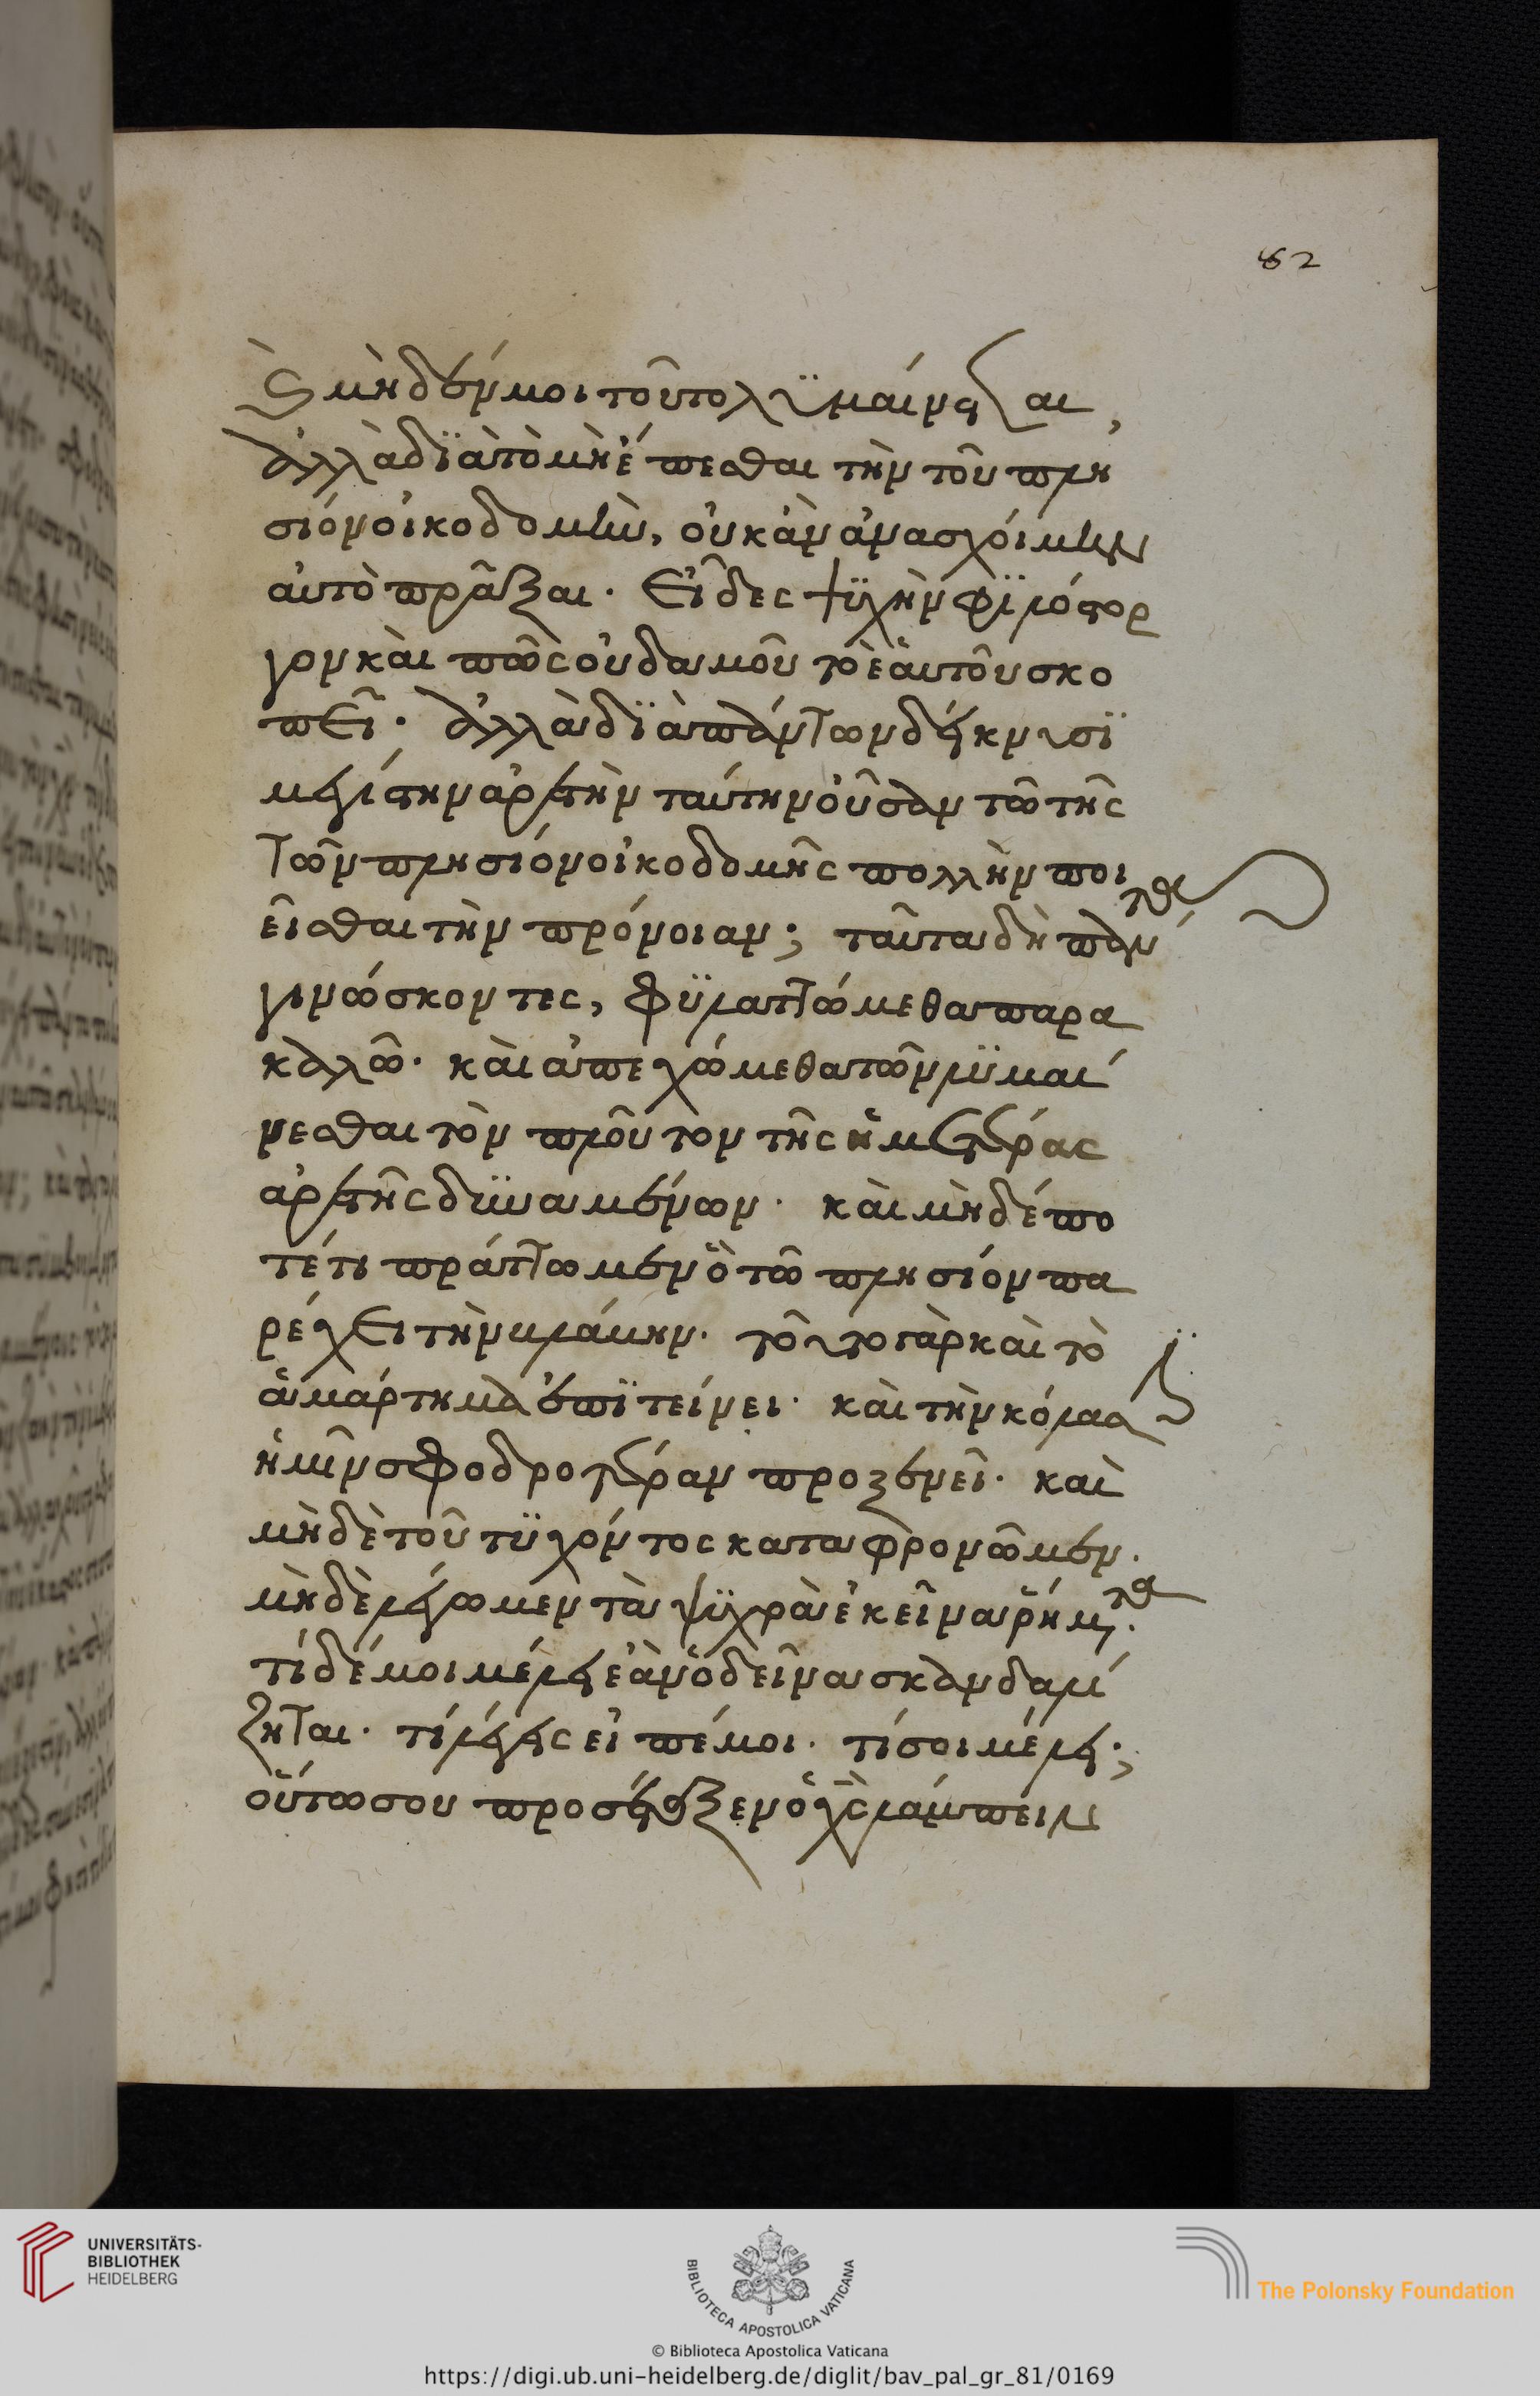 62
ὰ μηδέν μοι τοῦτο λυμαίνεται,
ἀλλὰ διὰ τὸ μὴ ἕπεσθαι τὴν τοῦ πλη
σίον οἰκοδομὴν, οὐκ ἂν ἀνασχοίμην
αὐτὸ πρᾶξαι. Εἶδες ψυχὴν φιλόστορ
γον καὶ πῶς οὐδαμοῦ τὸ ἑαυτοῦ σκο
πεῖ. ἀλλὰ διὰ πάντων δείκνυσι
μεγίστην ἀρετὴν ταύτην οὖσαν τῶ τῆς
τῶν πλησίον οἰκοδομῆς πολλὴν ποι
εῖσθαι τὴν πρόνοιαν; ταῦτα δὴ πάντα
γινώσκοντες, φυλαττώμεθα παρα
καλῶ. καὶ ἀπεχώμεθα τῶν λυμαί
νεσθαι τὸν πλοῦτον τῆς ἡμετέρας
ἀρετῆς δυναμένων. καὶ μηδέπο
τέ τι πράττωμεν ὃ τῶ πλησίον πα
ρέχει τὴν βλάβην. τοῦτο γὰρ καὶ τὸ
ἁμάρτημα ἐπιτείνει. καὶ τὴν κόλασιν
ἡμῖν σφοδροτέραν προξενεῖ. καὶ
μηδὲ τοῦ τυχόντος καταφρονῶμεν.
μηδὲ λέγωμεν τὰ ψυχρὰ ἐκεῖνα ῥήματα.
τί δέ μοι μέλει ἐὰν ὁ δεῖνα σκανδαλί
ζηται. τί λέγεις εἰπέ μοι. τί σοι μέλει;
οὕτω σου προσέταξεν ὁ χς λάμπειν
UNIVERSITÄTS-
BIBLIOTHEK
HEIDELBERG
BIBLIOTECA APOSTOLICA VATICANA
The Polonsky Foundation
© Biblioteca Apostolica Vaticana
https://digi.ub.uni-heidelberg.de/diglit/bav_pal_gr_81/0169